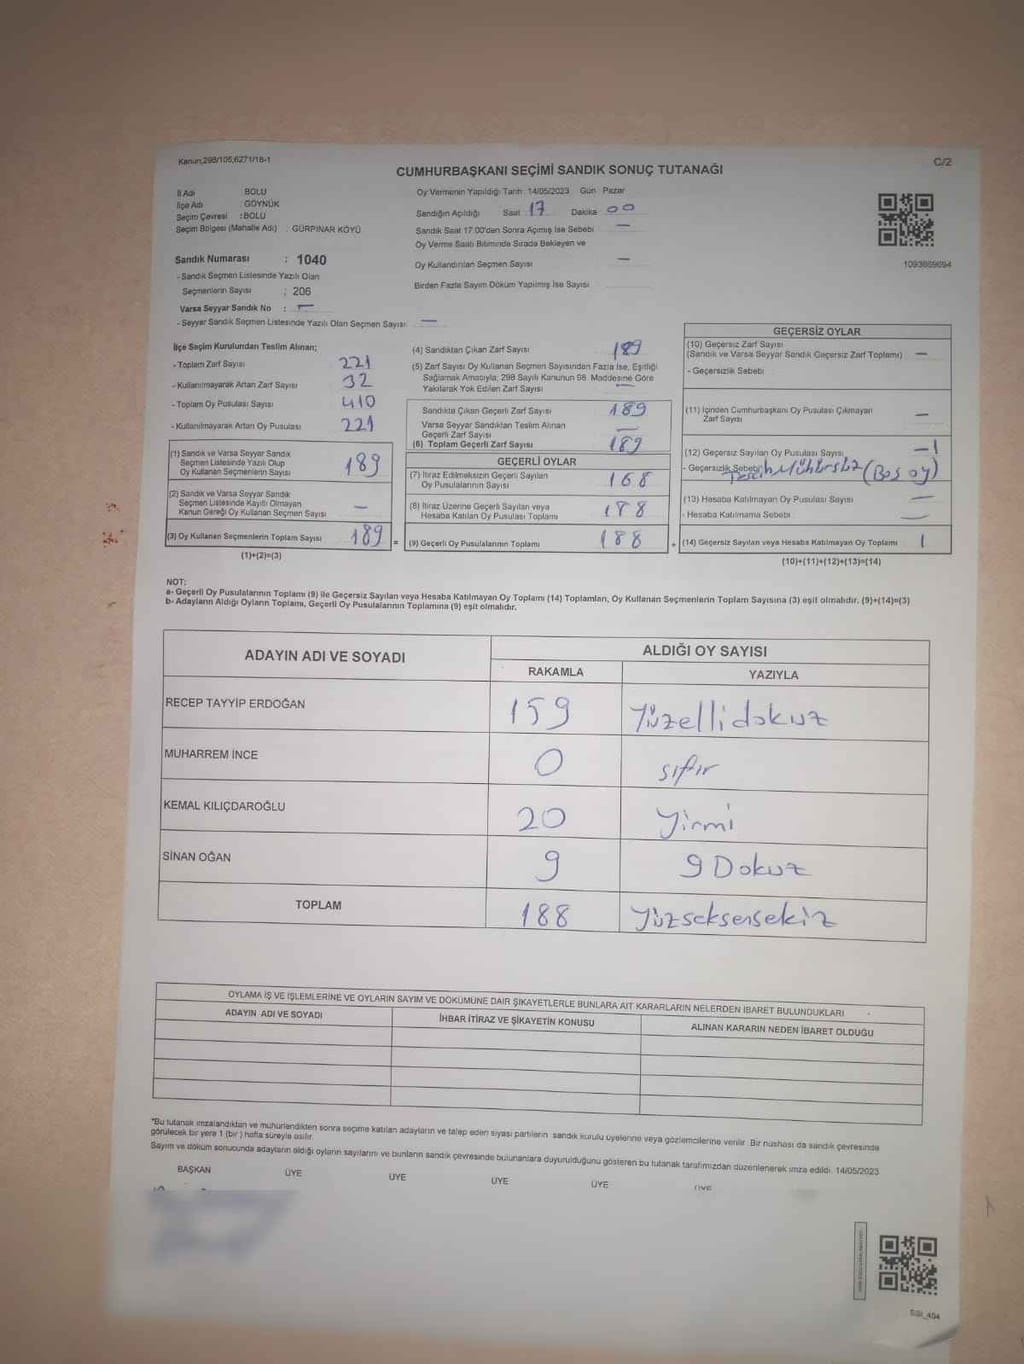 Kanun,298/105,6271/18-1
C/2
CUMHURBAŞKANI SEÇİMİ SANDIK SONUÇ TUTANAĞI
İl Adı BOLU
İlçe Adı : GÖYNÜK
Seçim Çevresi : BOLU
Seçim Bölgesi (Mahalle Adı) : GÜRPINAR KÖYÜ
Sandık Numarası : 1040
- Sandık Seçmen Listesinde Yazılı Olan
Seçmenlerin Sayısı : 206
Varsa Seyyar Sandık No : —
- Seyyar Sandık Seçmen Listesinde Yazılı Olan Seçmen Sayısı: —
Oy Vermenin Yapıldığı Tarih : 14/05/2023 Gün Pazar
Sandığın Açıldığı Saat 17 Dakika 00
Sandık Saat 17.00'den Sonra Açımış İse Sebebi —
Oy Verme Saati Bitiminde Sırada Bekleyen ve
Oy Kullandırılan Seçmen Sayısı —
Birden Fazla Sayım Döküm Yapılmış İse Sayısı
1093669694
İlçe Seçim Kurulundan Teslim Alınan;
- Toplam Zarf Sayısı 221
- Kullanılmayarak Artan Zarf Sayısı 32
- Toplam Oy Pusulası Sayısı 410
- Kullanılmayarak Artan Oy Pusulası 221
(1) Sandık ve Varsa Seyyar Sandık
Seçmen Listesinde Yazılı Olup
Oy Kullanan Seçmenlerin Sayısı 189
(2) Sandık ve Varsa Seyyar Sandık
Seçmen Listesinde Kayıtlı Olmayan
Kanun Gereği Oy Kullanan Seçmen Sayısı —
(3) Oy Kullanan Seçmenlerin Toplam Sayısı 189 =
(1)+(2)=(3)
(4) Sandıktan Çıkan Zarf Sayısı 189
(5) Zarf Sayısı Oy Kullanan Seçmen Sayısından Fazla İse, Eşitliği
Sağlamak Amacıyla, 298 Sayılı Kanunun 98. Maddesine Göre
Yakılarak Yok Edilen Zarf Sayısı —
Sandıkta Çıkan Geçerli Zarf Sayısı 189
Varsa Seyyar Sandıktan Teslim Alınan
Geçerli Zarf Sayısı —
(6) Toplam Geçerli Zarf Sayısı 189
GEÇERLİ OYLAR
(7) İtiraz Edilmeksizin Geçerli Sayılan
Oy Pusulalarının Sayısı 168
(8) İtiraz Üzerine Geçerli Sayılan veya
Hesaba Katılan Oy Pusulası Toplamı 188
(9) Geçerli Oy Pusulalarının Toplamı 188 +
GEÇERSİZ OYLAR
(10) Geçersiz Zarf Sayısı
(Sandık ve Varsa Seyyar Sandık Geçersiz Zarf Toplamı) —
- Geçersizlik Sebebi
(11) İçinden Cumhurbaşkanı Oy Pusulası Çıkmayan
Zarf Sayısı —
(12) Geçersiz Sayılan Oy Pusulası Sayısı —1
- Geçersizlik Sebebi Mühürsüz (Boş oy)
(13) Hesaba Katılmayan Oy Pusulası Sayısı —
- Hesaba Katılmama Sebebi —
(14) Geçersiz Sayılan veya Hesaba Katılmayan Oy Toplamı 1
(10)+(11)+(12)+(13)=(14)
NOT:
a- Geçerli Oy Pusulalarının Toplamı (9) ile Geçersiz Sayılan veya Hesaba Katılmayan Oy Toplamı (14) Toplamları, Oy Kullanan Seçmenlerin Toplam Sayısına (3) eşit olmalıdır. (9)+(14)=(3)
b- Adayların Aldığı Oyların Toplamı, Geçerli Oy Pusulalarının Toplamına (9) eşit olmalıdır.
ADAYIN ADI VE SOYADI ALDIĞI OY SAYISI
RAKAMLA YAZIYLA
RECEP TAYYİP ERDOĞAN 159 Yüzellidokuz
MUHARREM İNCE 0 sıfır
KEMAL KILIÇDAROĞLU 20 Yirmi
SİNAN OĞAN 9 9 Dokuz
TOPLAM 188 Yüzseksensekiz
OYLAMA İŞ VE İŞLEMLERİNE VE OYLARIN SAYIM VE DÖKÜMÜNE DAİR ŞİKAYETLERLE BUNLARA AİT KARARLARIN NELERDEN İBARET BULUNDUKLARI
ADAYIN ADI VE SOYADI İHBAR İTİRAZ VE ŞİKAYETİN KONUSU ALINAN KARARIN NEDEN İBARET OLDUĞU
*Bu tutanak imzalandıktan ve mühürlendikten sonra seçime katılan adayların ve talep eden siyasi partilerin sandık kurulu üyelerine veya gözlemcilerine verilir. Bir nüshası da sandık çevresinde
görülecek bir yere 1 (bir) hafta süreyle asılır.
Sayım ve döküm sonucunda adayların aldığı oyların sayılarını ve bunların sandık çevresinde bulunanlara duyurulduğunu gösteren bu tutanak tarafımızdan düzenlenerek imza edildi. 14/05/2023
BAŞKAN ÜYE ÜYE ÜYE ÜYE ÜYE